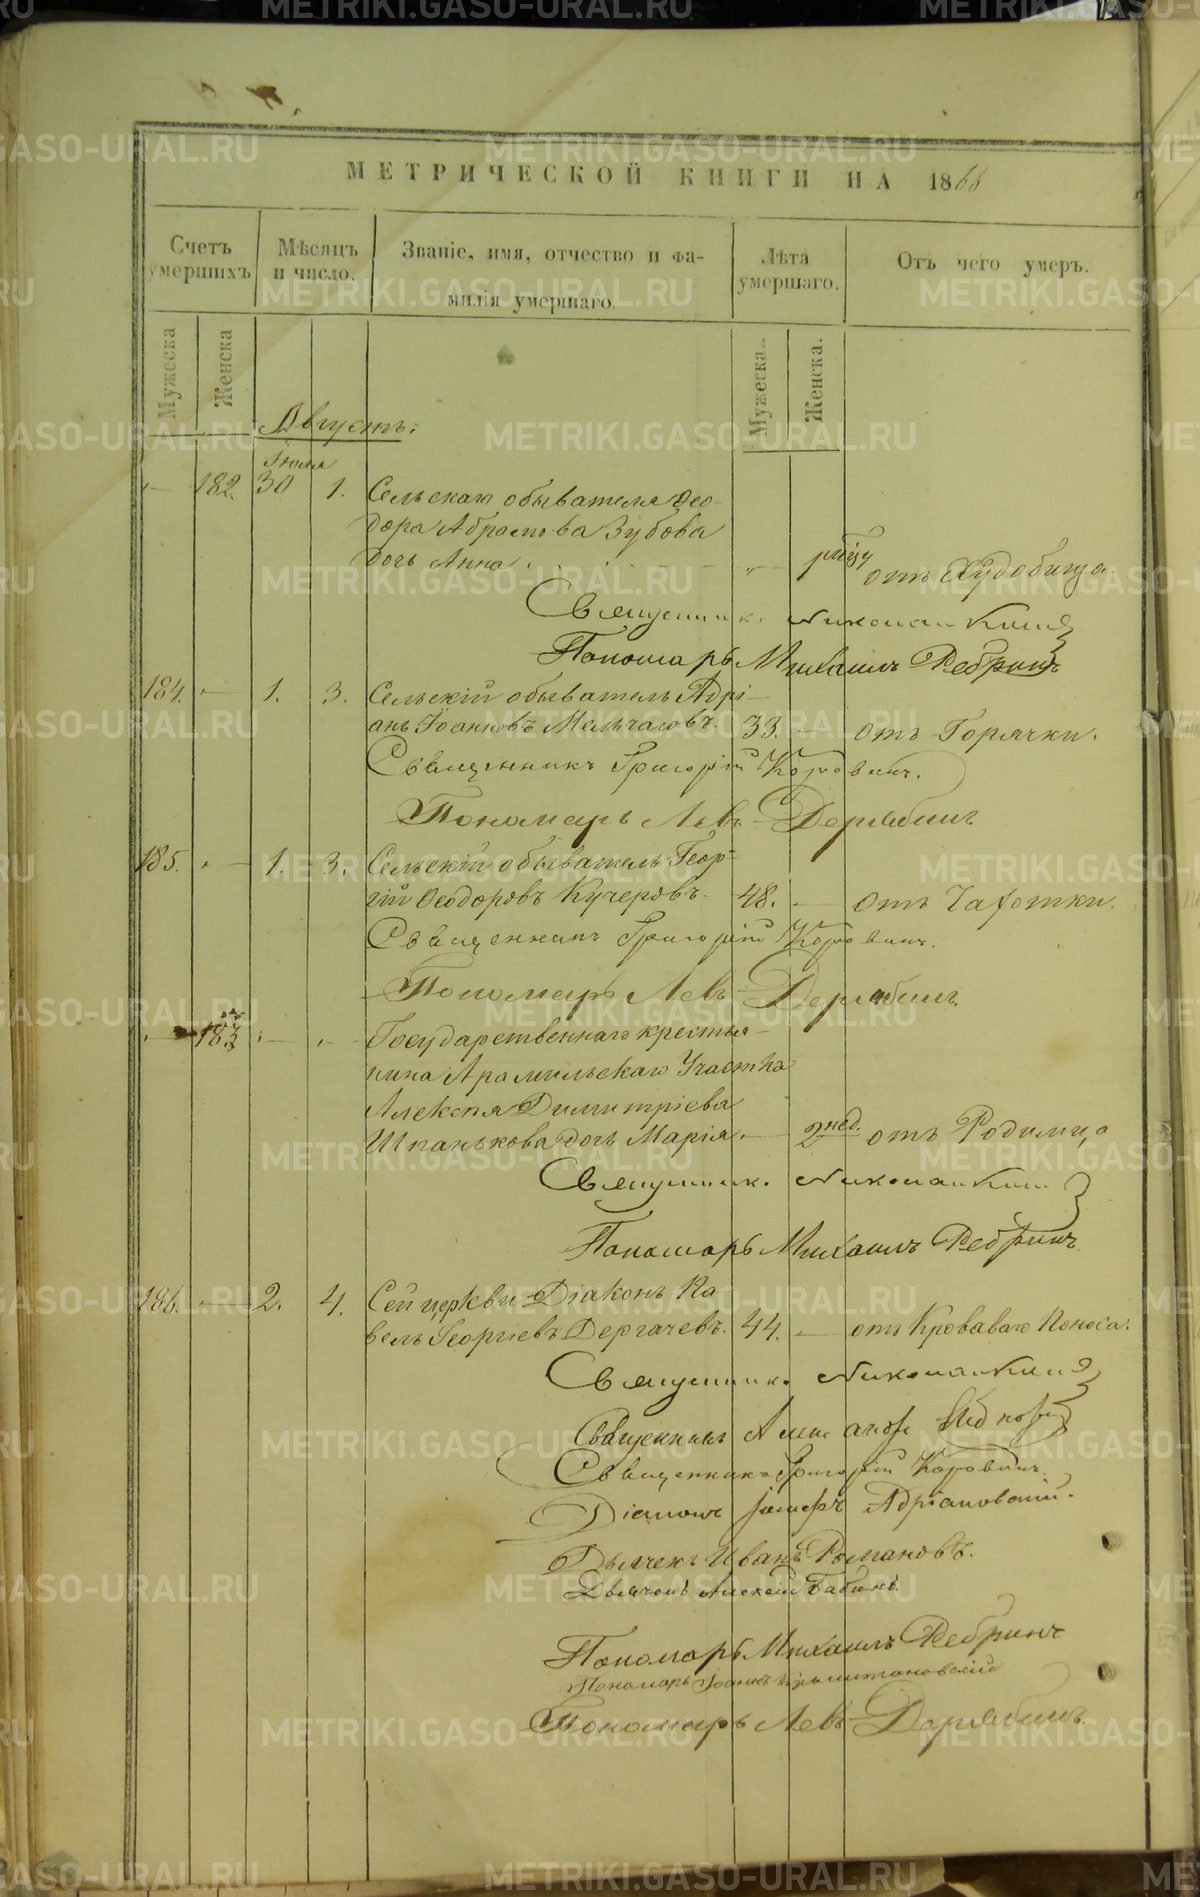 МЕТРИЧЕСКОЙ КНИГИ НА 1866
Счетъ умершихъ.
Мѣсяцъ и число.
Званіе, имя, отчество и фамилія умершаго.
Лѣта умершаго.
Отъ чего умеръ.
Мужеска
Женска
Мужеска.
Женска.
Августъ.
Іюля
182. 30 1. Сельскаго обывателя Ѳео-
дора Абрамова Зубова
дочь Анна от Худобища.
Священникъ
Пономарь Михаилъ Ребринъ
184. 1. 3. Сельскій обыватель Адрі-
анъ Іоанновъ Мельчаговъ. 33. отъ Горячки.
Священникъ Григорій Коровинъ.
Пономарь Левъ Дерябинъ
185. 1. 3. Сельскій обыватель Геор-
гій Ѳеодоровъ Кучеровъ. 48. отъ Чахотки.
Священникъ Григорій Коровинъ.
Пономарь Левъ Дерябинъ.
183 Государственнаго крестья-
нина Арамильскаго Участка
Алексѣя Димитріева
Шпанькова дочь Марія. 2 нед. отъ Родимца
Священникъ
Пономарь Михаилъ Ребринъ.
186. 2. 4. Сей церкви Діаконъ Па
велъ Георгіевъ Дергачевъ. 44. отъ Кроваваго Поноса.
Священникъ
Священникъ
Священникъ Григорій Коровинъ
Діаконъ Іосифъ Адріановскій.
Дьячекъ Иванъ Романовъ.
Дьячекъ Алексій Бабинъ.
Пономарь Михаилъ Ребринъ
Пономарь Іоаннъ
Пономарь Левъ Дерябинъ.
METRIKI.GASO-URAL.RU